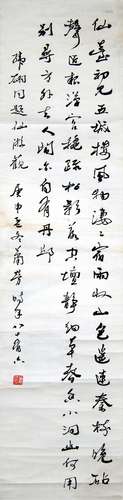 仙臺初見五城樓風物淒淒宿雨收山色遥連秦樹晚砧
聲近報漢宫穐疏松影落空壇静細草春香小洞幽何用
别尋方外去人間亦自有丹邱
韓翃同題仙游觀 庚申冬 時年八十有六